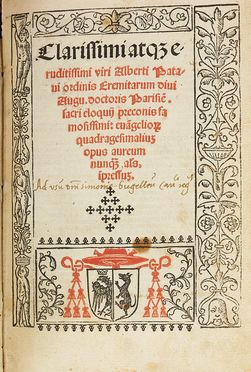 Clarissimi atqꝫ e-
ruditissimi viri Alberti Pata-
ui ordinis Eremitarum diui
Augu. doctoris Parisiē.
sacri eloquij preconis fa
mosissimi: euāgelioꝝ
quadragesimaliuꝫ
opus aureum
nunqꝫ als.
īpressuꝫ.
Ad usū